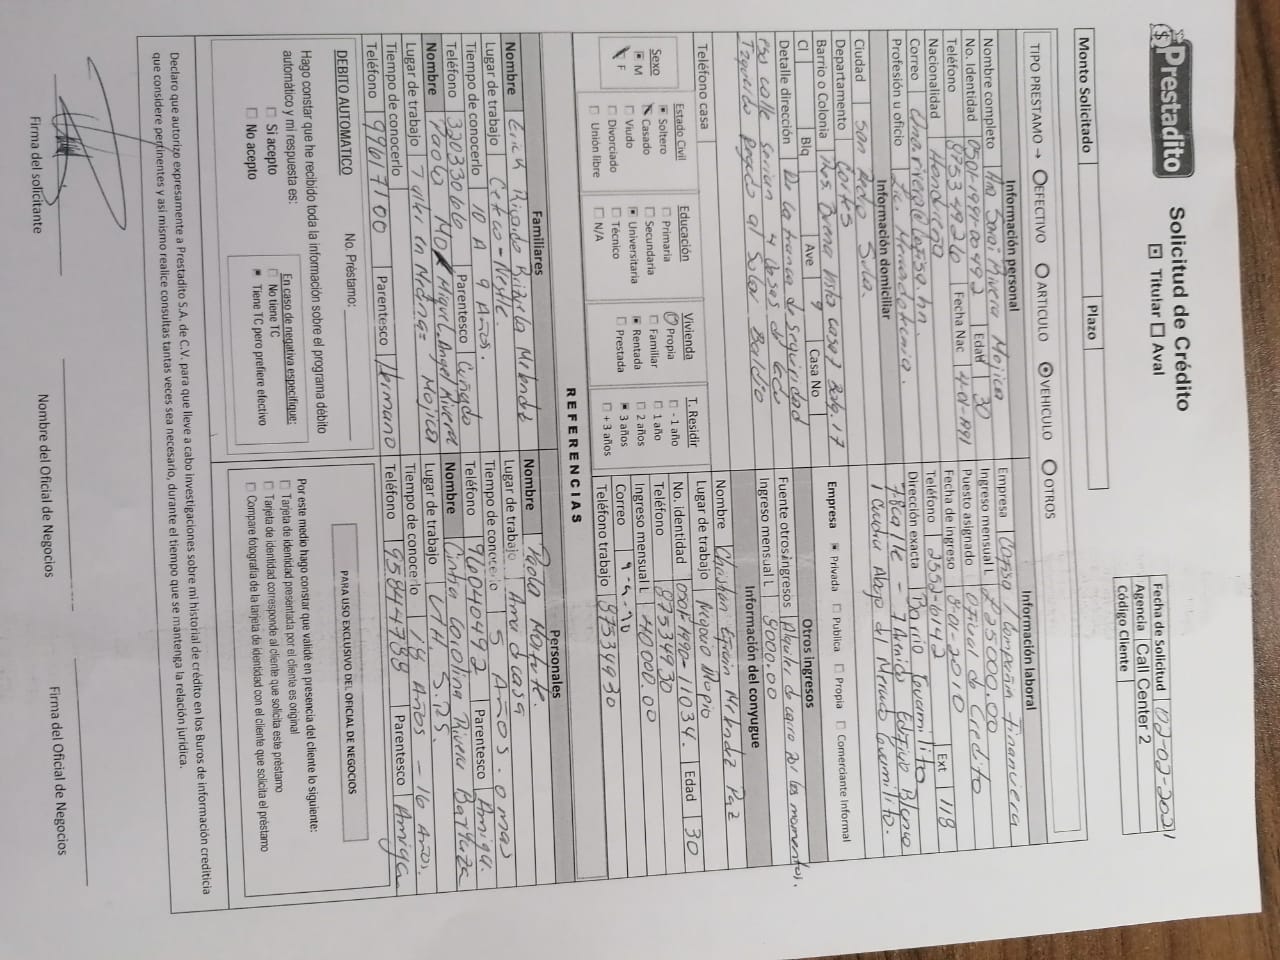 Prestadito
Solicitud de Crédito
Titular Aval
Fecha de Solicitud 02-02-2021
Agencia Call Center 2
Código Cliente
Monto Solicitado Plazo
TIPO PRESTAMO → EFECTIVO ARTICULO VEHICULO OTROS
Información personal
Nombre completo Ana Sarai Rivera Mojica
No. Identidad 0501-1991-00492 Edad 30
Teléfono 87534926 Fecha Nac 4-01-1991
Nacionalidad Hondureña
Correo
Profesión u oficio Lic. Mercadotecnia.
Información domiciliar
Ciudad San Pedro Sula.
Departamento Cortes
Barrio o Colonia Res. Buena Vista casa 7 Bolq. 17
Cl Blq Ave 9 Casa No
Detalle dirección De la tranca de seguridad
calle 4 casas
Izquierda pegado al Solar Baldio
Teléfono casa
Sexo
M
F
Estado Civil
Soltero
Casado
Viudo
Divorciado
Unión libre
Educación
Primaria
Secundaria
Universitaria
Técnico
N/A
Vivienda
Propia
Familiar
Rentada
Prestada
T. Residir
- 1 año
1 año
2 años
3 años
+ 3 años
Información laboral
Empresa Cofisa / Compañia Financiera
Ingreso mensual L L25000.00
Puesto asignado Oficial de Credito
Fecha de ingreso 8-01-2010
Teléfono 2552-6142 Ext 118
Dirección exacta Barrio Guamilito
7-8 calle - 7 Avenida Edificio Blanco
1 Cuadra Abajo del Mercado Guamilito.
Empresa Privada Publica Propia Comerciante Informal
Otros ingresos
Fuente otros ingresos Alquiler de carro por los momentos.
Ingreso mensual L 9000.00
Información del conyugue
Nombre Christian Efrain Mendez Paz
Lugar de trabajo Negocio Propio
No. identidad 0501-1990-11034. Edad 30
Teléfono 87534930
Ingreso mensual L 40000.00
Correo
Teléfono trabajo 87534930
REFERENCIAS
Familiares
Nombre Erick Ricardo
Lugar de trabajo
Tiempo de conocerlo 10 A 9 Años.
Teléfono 32033066 Parentesco Cuñado
Nombre Miguel Angel Rivera Mojica
Lugar de trabajo
Tiempo de conocerlo
Teléfono 99617100 Parentesco Hermano
Personales
Nombre Paola
Lugar de trabajo Ama d casa
Tiempo de conocerlo 5 Años. o mas
Teléfono 96040492 Parentesco Amiga.
Nombre Cintia Carolina Rivera
Lugar de trabajo UTH. S.P.S.
Tiempo de conocerlo Años - 16 Años.
Teléfono 95844788 Parentesco Amiga
DEBITO AUTOMATICO No. Préstamo:
Hago constar que he recibido toda la información sobre el programa débito
automático y mi respuesta es:
Si acepto
No acepto
En caso de negativa especifique:
No tiene TC
Tiene TC pero prefiere efectivo
PARA USO EXCLUSIVO DEL OFICIAL DE NEGOCIOS
Por este medio hago constar que validé en presencia del cliente lo siguiente:
Tarjeta de identidad presentada por el cliente es original
Tarjeta de identidad corresponde al cliente que solicita este préstamo
Compare fotografía de la tarjeta de identidad con el cliente que solicita el préstamo
Declaro que autorizo expresamente a Prestadito S.A. de C.V. para que lleve a cabo investigaciones sobre mi historial de crédito en los Buros de información crediticia
que considere pertinentes y así mismo realice consultas tantas veces sea necesario, durante el tiempo que se mantenga la relación jurídica.
Firma del solicitante
Nombre del Oficial de Negocios
Firma del Oficial de Negocios